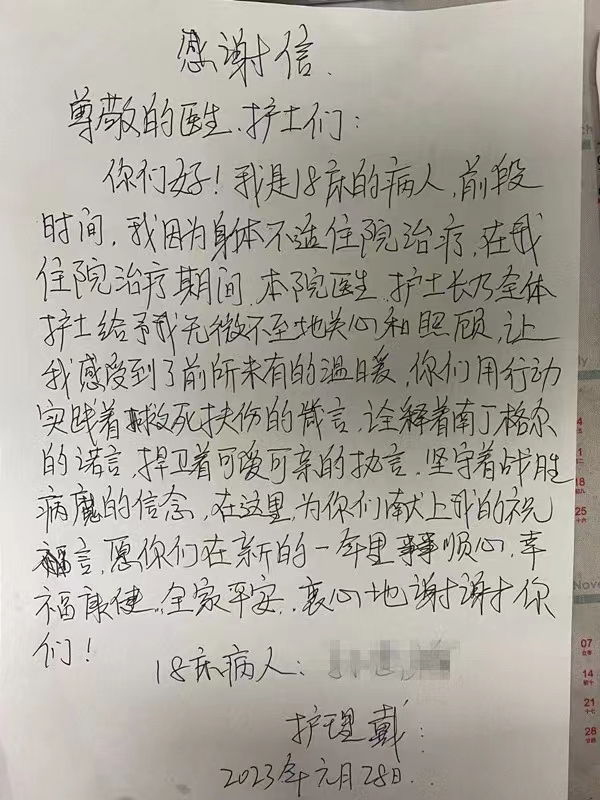 感谢信.
尊敬的医生、护士们:
你们好!我是18床的病人,前段
时间,我因为身体不适住院治疗,在我
住院治疗期间,本院医生、护士长乃全体
护士给予我无微不至地关心和照顾,让
我感受到了前所未有的温暖,你们用行动
实践着救死扶伤的箴言,诠释着南丁格尔
的诺言,捍卫着可爱可亲的执言,坚守着战胜
病魔的信念,在这里,为你们献上我的祝
福言,愿你们在新的一年里事事顺心,幸
福康健,全家平安,衷心地谢谢你
们!
18床病人:
护理戴:
2023年元月28日.
07
14
21
28
18
25